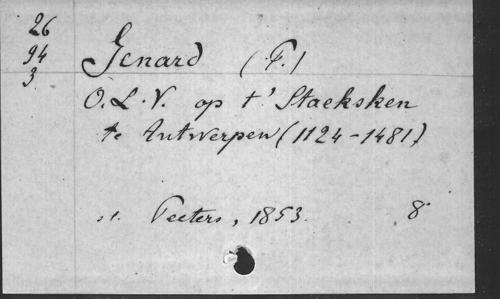 26
94
3
Genard (P.)
O.L.V. op t' Staeksken
te Antwerpen (1124-1481)
Peeters, 1853. 8°